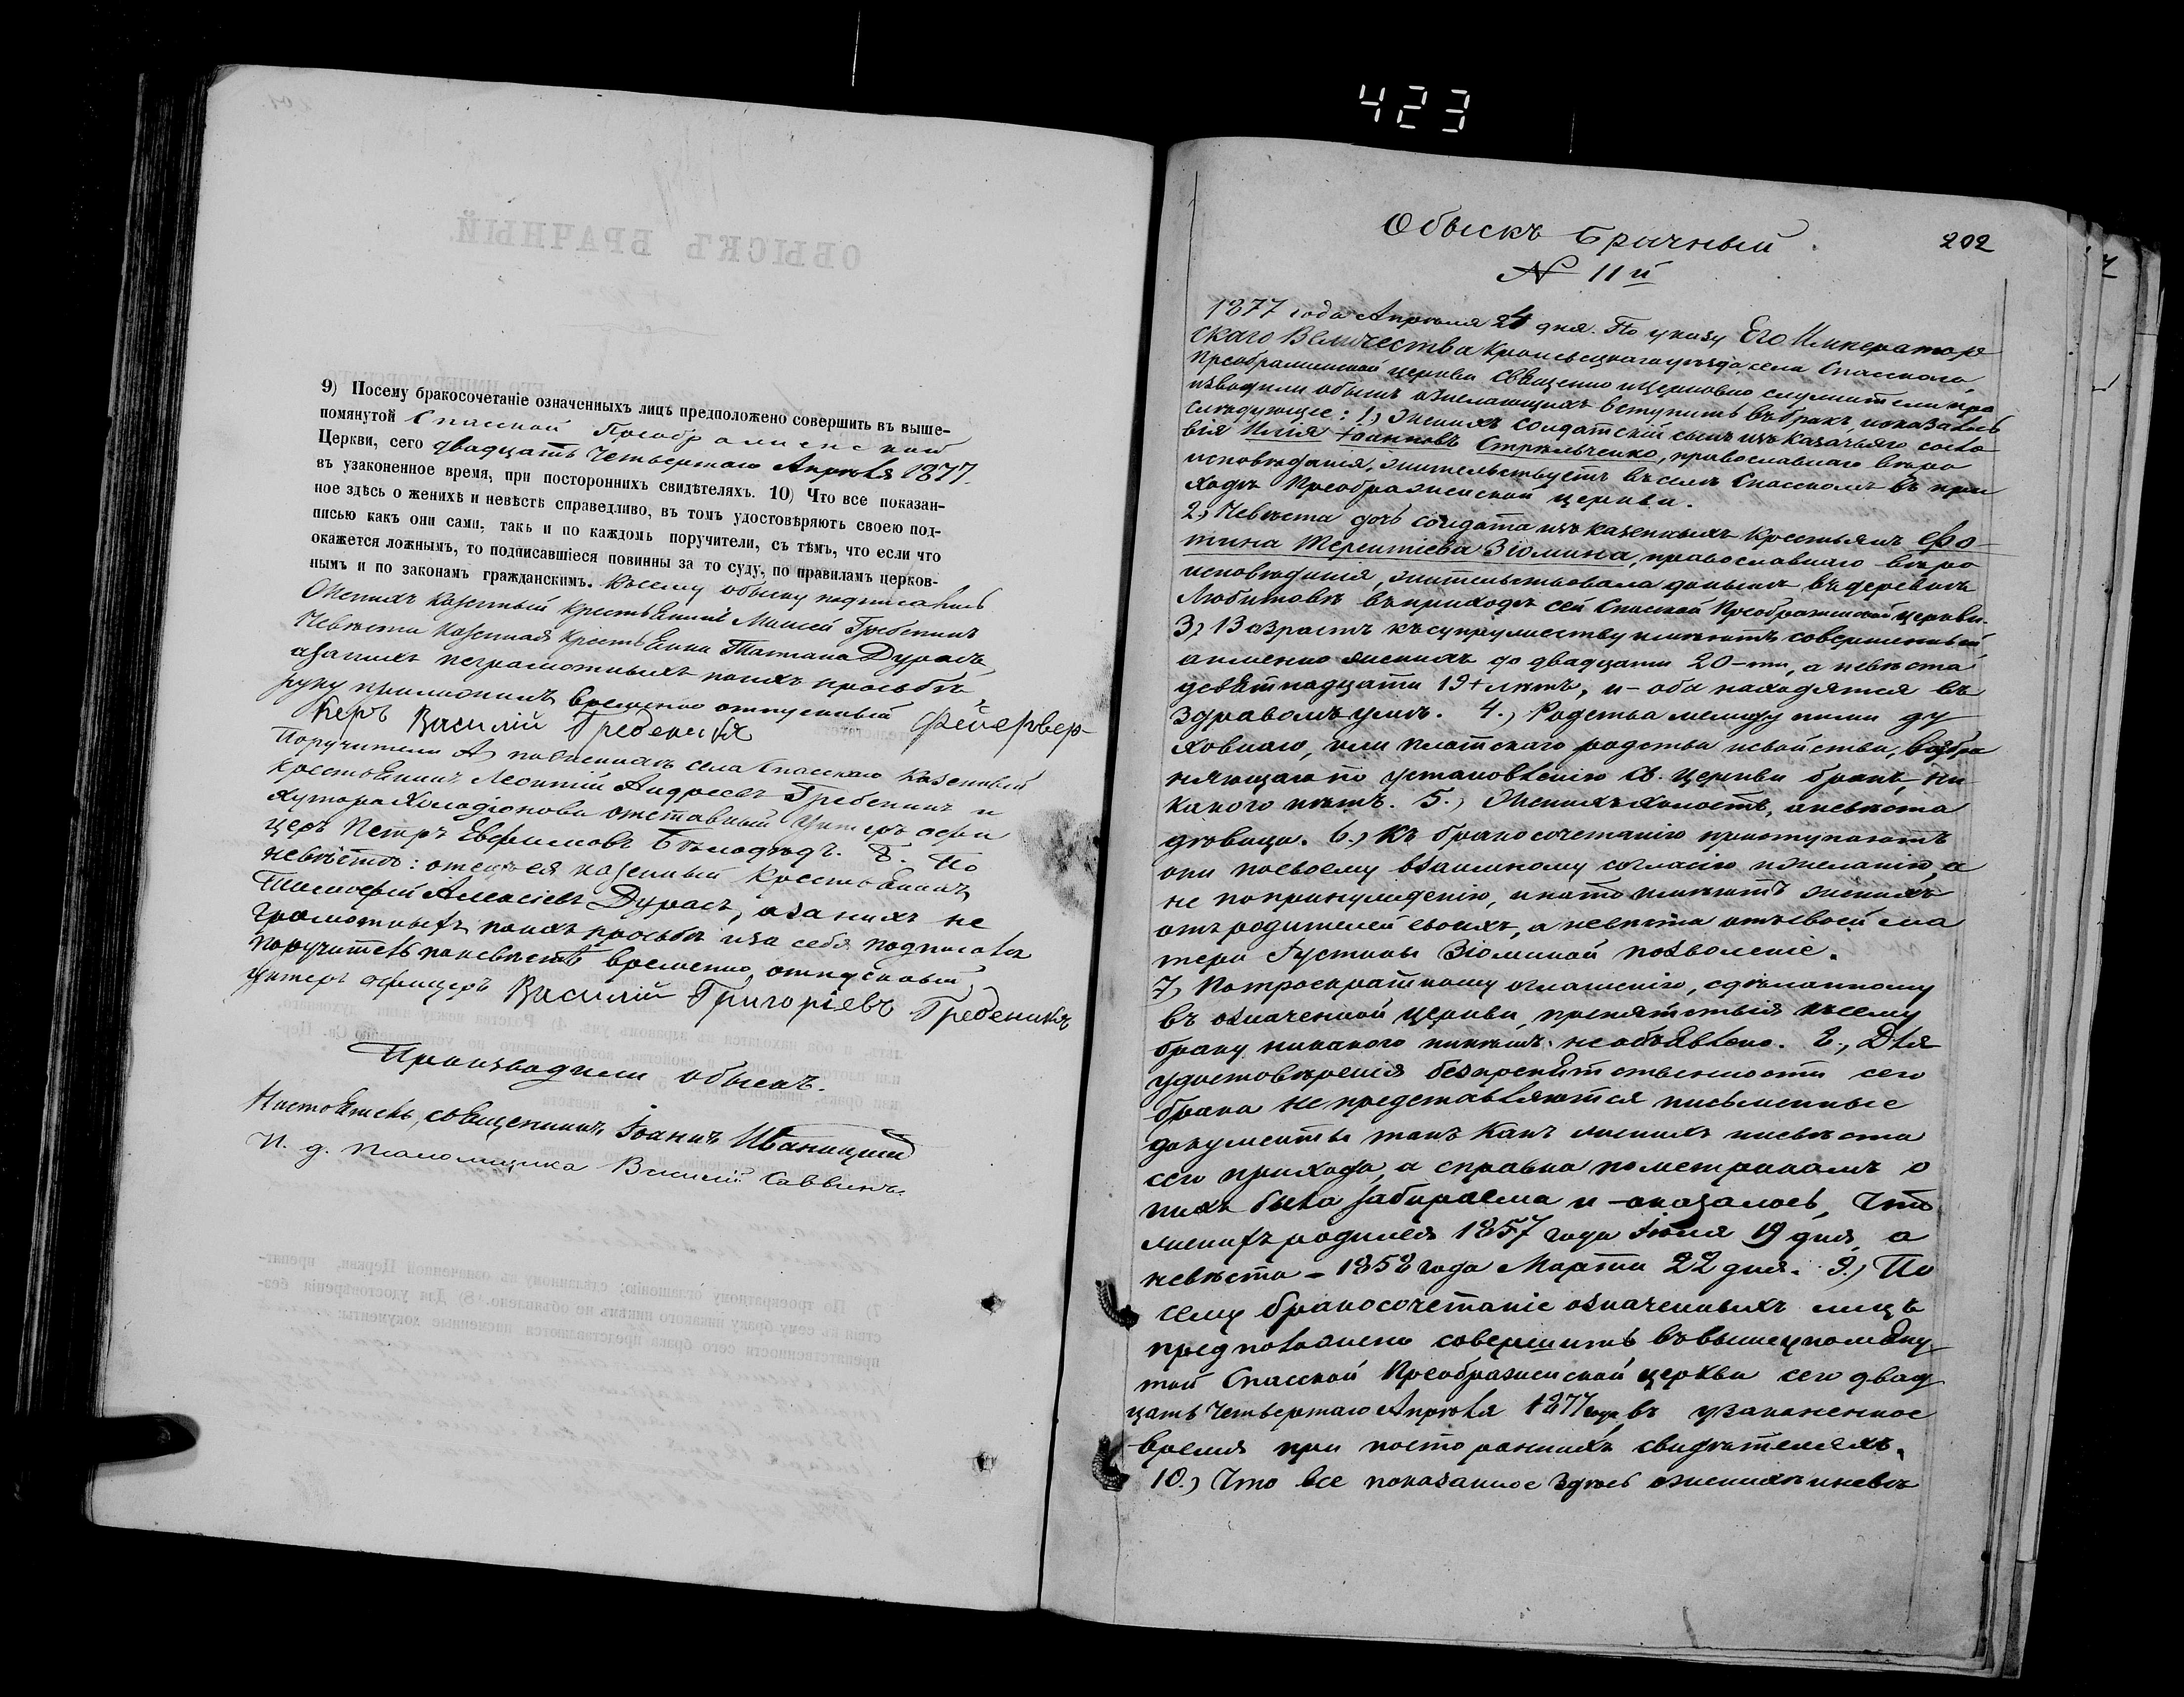 9) Посему бракосочетаніе означенныхъ лицъ предположено совершить въ выше-
помянутой Спасской Преображенской
Церкви, сего двадцать четвертаго Апрѣля 1877.
въ узаконенное время, при постороннихъ свидѣтеляхъ. 10) Что все показан-
ное здѣсь о женихѣ и невѣстѣ справедливо, въ томъ удостовѣряютъ своею под-
писью какъ они сами, такъ и по каждомъ поручители, съ тѣмъ, что если что
окажется ложнымъ, то подписавшіеся повинны за то суду, по правиламъ церков-
нымъ и по законамъ гражданскимъ. Къ сему обыску подписались
Женихъ казенный крестьянинъ Моисей Гребеникъ
Невѣста казенная крестьянка Татіана Дурасъ,
а за нихъ неграмотныхъ по ихъ просьбѣ
руку приложилъ временно отпускный Фейервер-
керъ Василій Гребеникъ
Поручители А) по женихѣ села Спасскаго казенный
крестьянинъ Леонтій Андреевъ Гребеникъ и
хутора Холодіонова отставный Унтеръ офи
церъ Петръ Евфимовъ Бѣлодѣдъ. Б. По
невѣстѣ: отецъ ея казенный крестьянинъ
Тимофей Алексіевъ Дурасъ, а за нихъ не
грамотныхъ по ихъ просьбѣ и за себя подписался
поручитель по невѣстѣ временно отпускный
Унтеръ офицеръ Василій Григоріевъ Гребеникъ
Производили обыскъ.
Настоятель, священникъ Іоаннъ Иваницкій
И. д. псаломщика Василій Саввинъ.
423
202
Обыскъ брачный.
N 11й
1877 года Апрѣля 24 дня. По указу Его Император
скаго Величества Кролевецкаго уѣзда села Спасскаго
Преображенской церкви Священно и Церковно служители про
изводили обыскъ о желающихъ вступить въ бракъ, и оказалось
слѣдующее: 1.) Женихъ солдатскій сынъ изъ казачьяго сосло
вія Илія Іоанновъ Стрѣльченко, православнаго вѣро
исповѣданія, жительствуетъ въ селѣ Спасскомъ въ при
ходѣ Преображенской церкви.
2.) Невѣста дочь солдата изъ казенныхъ крестьянъ Фо-
тина Терентіева Зюмина, православнаго вѣро
исповѣданія, жительствовала донынѣ въ деревнѣ
Любитовѣ въ приходѣ сей Спасской Преображенской церкви.
3.) Возрастъ къ супружеству имѣютъ совершенный
а именно женихъ до двадцати 20-ти, а невѣста
девятнадцати 19ть лѣтъ, и оба находятся въ
здравомъ умѣ. 4.) Родства между ними ду
ховнаго, или плотскаго родства и свойства, возбра
няющаго по установленію Св. Церкви бракъ, ни
какого нѣтъ. 5.) Женихъ холостъ, а невѣста
дѣвица. 6.) Къ бракосочетанію приступаютъ
они по своему взаимному согласію и желанію, а
не по принужденію, и на то имѣютъ женихъ
отъ родителей своихъ, а невѣста отъ своей ма
тери Іустины Зюминой позволеніе.
7.) По троекратному оглашенію, сдѣланному
въ означенной церкви, препятствія къ сему
браку никакого никѣмъ не объявлено. 8.) Для
удостовѣренія безпрепятственности сего
брака не представляются письменные
документы такъ какъ женихъ и невѣста
сего прихода, а справка по метрикамъ о
нихъ была забираема и оказалось, что
женихъ родился 1857 года Іюля 19 дня, а
невѣста - 1858 года Марта 22 дня. 9.) По
сему бракосочетаніе означенныхъ лицъ
предположено совершить въ вышеупомяну
той Спасской Преображенской церкви сего двад
цать четвертаго Апрѣля 1877 года въ узаконенное
время при постороннихъ свидѣтеляхъ.
10.) Что все показанное здѣсь о женихѣ и невѣ